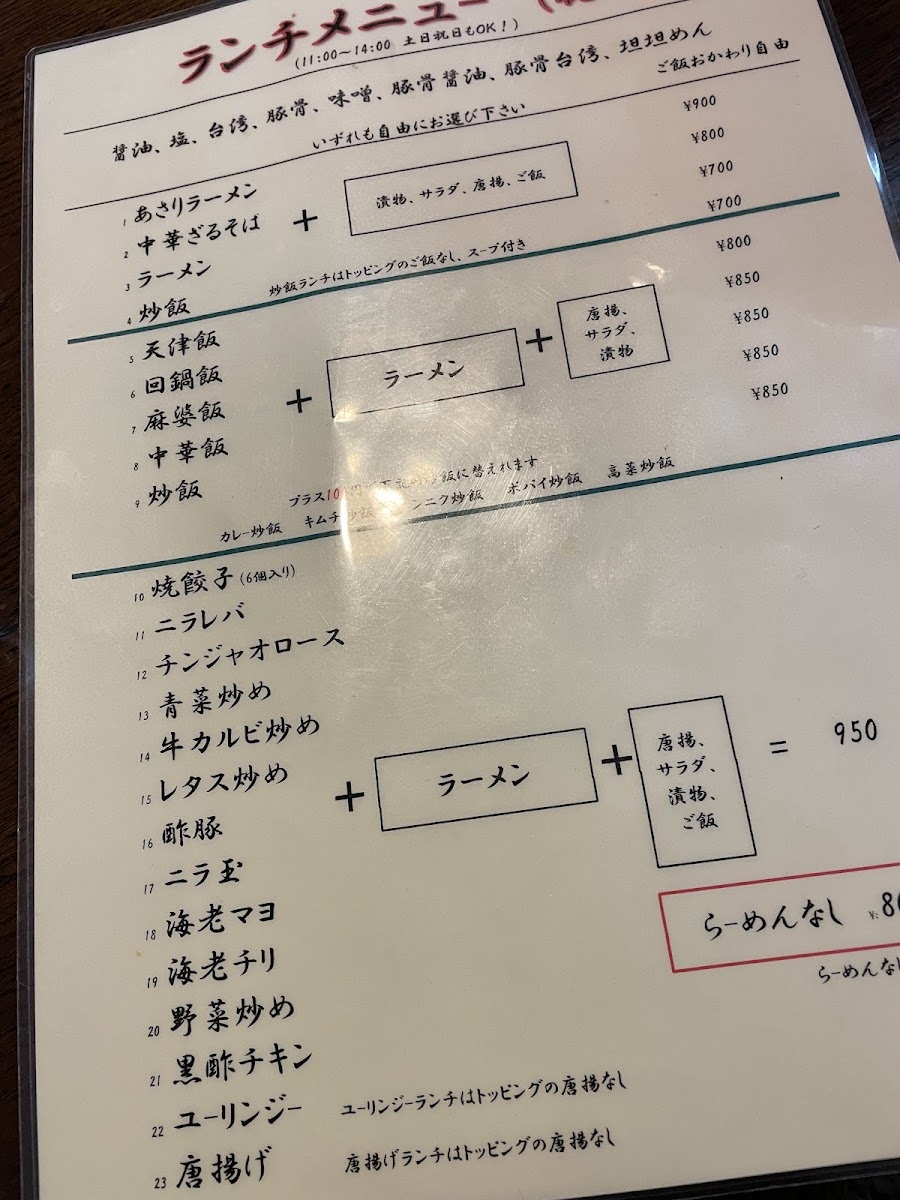 ランチメニュー
(11:00～14:00 土日祝日もOK！)
醤油、塩、台湾、豚骨、味噌、豚骨醤油、豚骨台湾、坦坦めん
いずれも自由にお選び下さい
ご飯おかわり自由
1 あさりラーメン ¥900
2 中華ざるそば ¥800
3 ラーメン ¥700
4 炒飯 ¥700
+ 漬物、サラダ、唐揚、ご飯
炒飯ランチはトッピングのご飯なし、スープ付き
5 天津飯 ¥800
6 回鍋飯 ¥850
7 麻婆飯 ¥850
8 中華飯 ¥850
9 炒飯 ¥850
+ ラーメン + 唐揚、
サラダ、
漬物
プラス10 飯に替えれます
カレー炒飯 キムチ炒飯 ンニク炒飯 ポパイ炒飯 高菜炒飯
10 焼餃子 (6個入り)
11 ニラレバ
12 チンジャオロース
13 青菜炒め
14 牛カルビ炒め
15 レタス炒め
16 酢豚
17 ニラ玉
18 海老マヨ
19 海老チリ
20 野菜炒め
21 黒酢チキン
22 ユーリンジー ユーリンジーランチはトッピングの唐揚なし
23 唐揚げ 唐揚げランチはトッピングの唐揚なし
+ ラーメン + 唐揚、
サラダ、
漬物、
ご飯
= 950
らーめんなし ¥:8
らーめんなし